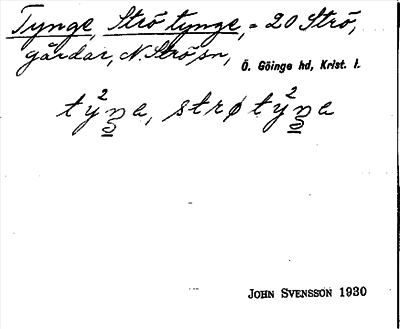 Tynge, Strö tynge, = 20 Strö,
gärdar, N. Strö sn,
Ö. Göinge hd, Krist. l.
JOHN SVENSSON 1930